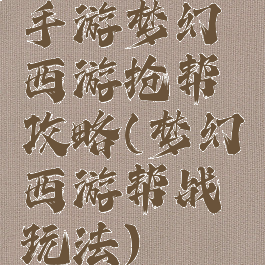 手游梦幻
西游抢帮
攻略(梦幻
西游帮战
玩法)